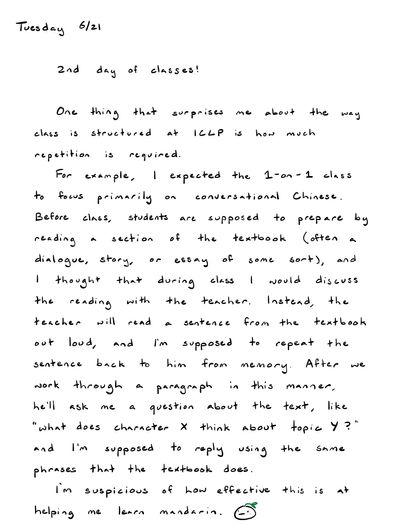 Tuesday 6/21
2nd day of classes!
One thing that surprises me about the way
class is structured at ICLP is how much
repetition is required.
For example, I expected the 1-on-1 class
to focus primarily on conversational Chinese.
Before class, students are supposed to prepare by
reading a section of the textbook (often a
dialogue, story, or essay of some sort), and
I thought that during class I would discuss
the reading with the teacher. Instead, the
teacher will read a sentence from the textbook
out loud, and I'm supposed to repeat the
sentence back to him from memory. After we
work through a paragraph in this manner,
he'll ask me a question about the text, like
"what does character X think about topic Y?"
and I'm supposed to reply using the same
phrases that the textbook does.
I'm suspicious of how effective this is at
helping me learn mandarin.